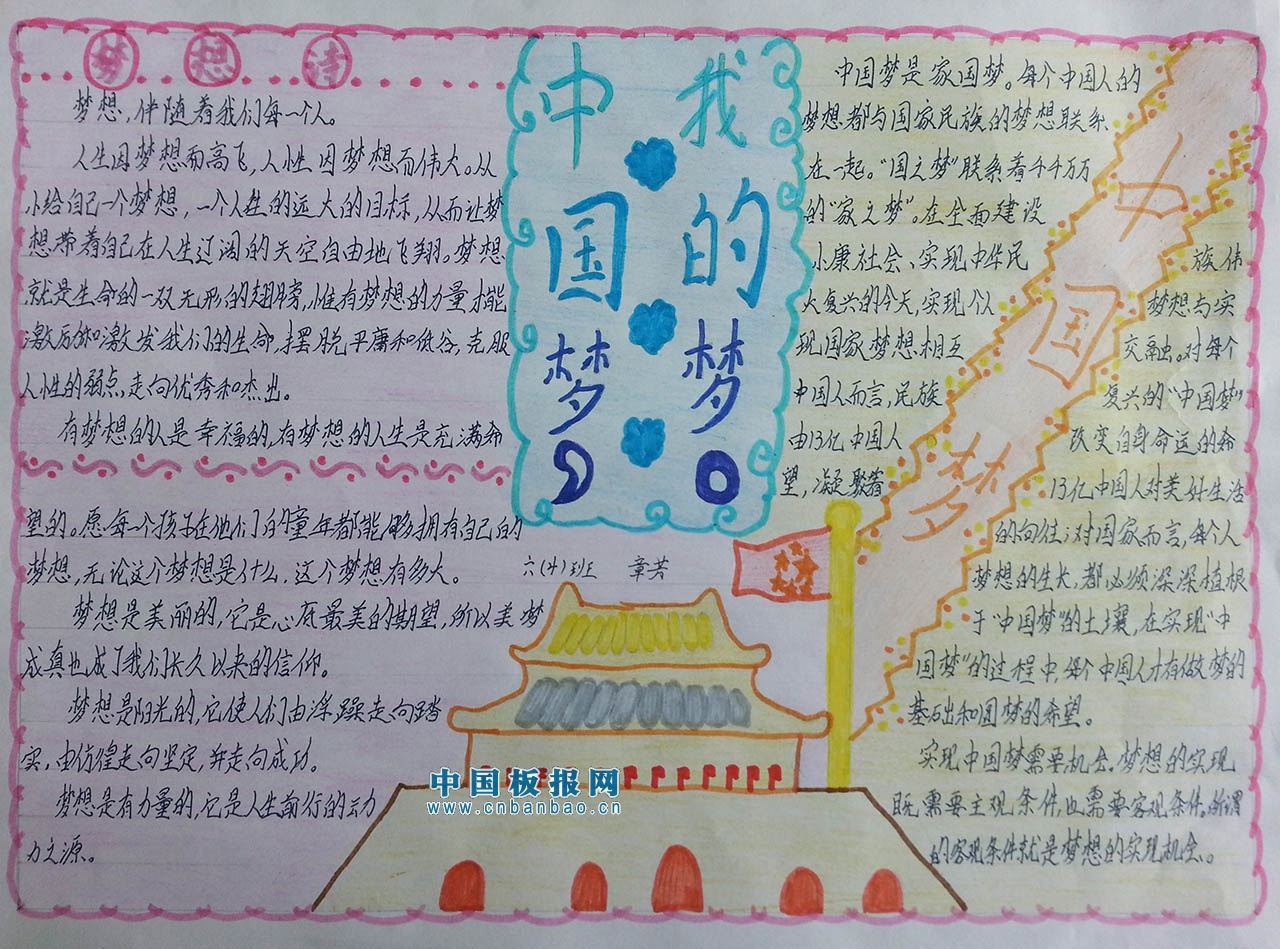 梦想诗
梦想，伴随着我们每一个人。
人生因梦想而高飞，人性因梦想而伟大。从
小给自己一个梦想，一个人生的远大的目标，从而让梦
想带着自己在人生辽阔的天空自由地飞翔。梦想
就是生命的一双无形的翅膀，惟有梦想的力量才能
激励和激发我们的生命，摆脱平庸和低谷，克服
人性的弱点，走向优秀和杰出。
有梦想的人是幸福的，有梦想的人生是充满希
望的。愿每一个孩子在他们的童年都能够拥有自己的
梦想，无论这个梦想是什么，这个梦想有多大。
梦想是美丽的，它是心底最美的期望，所以美梦
成真也成了我们长久以来的信仰。
梦想是阳光的，它使人们由浮躁走向踏
实，由彷徨走向坚定，并走向成功。
梦想是有力量的，它是人生前行的动力
力之源。
我的梦
中国梦
六(4)班 章芸
中国梦是家国梦。每个中国人的
梦想都与国家民族的梦想联系
在一起。“国之梦”联系着千千万万
的“家之梦”。在全面建设
小康社会、实现中华民 族伟
大复兴的今天，实现个人 梦想与实
现国家梦想相互 交融。对每个
中国人而言，民族 复兴的“中国梦”
由13亿中国人 改变自身命运的希
望，凝聚着 13亿中国人对美好生活
的向往；对国家而言，每个人
梦想的生长，都必须深深植根
于“中国梦”的土壤，在实现“中
国梦”的过程中，每个中国人才有做梦的
基础和圆梦的希望。
实现中国梦需要机会。梦想的实现
既需要主观条件，也需要客观条件。所谓
的客观条件就是梦想的实现机会。
中国梦
中国板报网
www.cnbanbao.cn